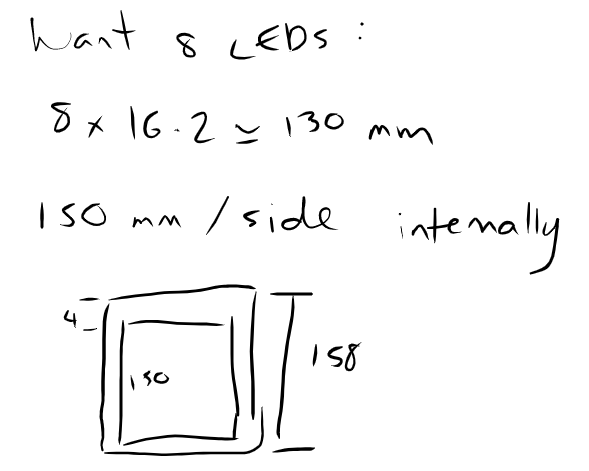 Want 8 LEDs :
8 × 16.2 ≃ 130 mm
150 mm / side internally
4
150
158